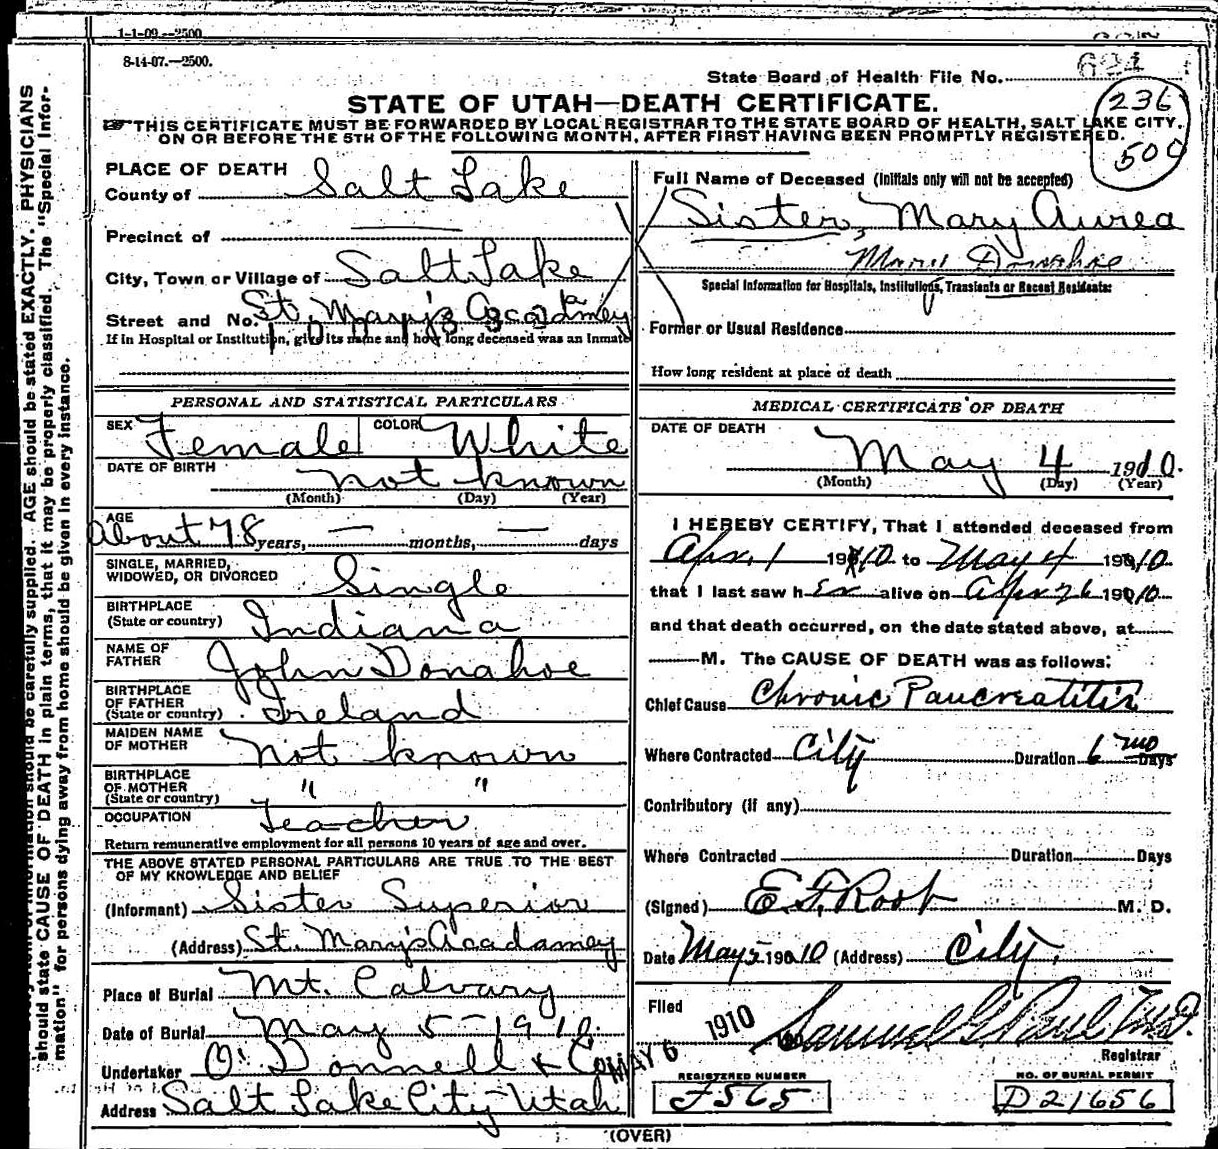 1-1-09.—2500
8-14-07.—2500.
State Board of Health File No.
236
500
STATE OF UTAH—DEATH CERTIFICATE.
THIS CERTIFICATE MUST BE FORWARDED BY LOCAL REGISTRAR TO THE STATE BOARD OF HEALTH, SALT LAKE CITY,
ON OR BEFORE THE 5TH OF THE FOLLOWING MONTH, AFTER FIRST HAVING BEEN PROMPTLY REGISTERED.
PLACE OF DEATH
County of Salt Lake
Precinct of —
City, Town or Village of Salt Lake
Street and No. St. Mary's Acadamey
If in Hospital or Institution, give its name and how long deceased was an Inmate
Full Name of Deceased (Initials only will not be accepted)
Sister, Mary Aurea
Donahoe
Special Information for Hospitals, Institutions, Transients or Recent Residents:
Former or Usual Residence
How long resident at place of death
PERSONAL AND STATISTICAL PARTICULARS
SEX Female COLOR White
DATE OF BIRTH not known
(Month) (Day) (Year)
AGE
About 78 years, — months, — days
SINGLE, MARRIED,
WIDOWED, OR DIVORCED Single
BIRTHPLACE
(State or country) Indiana
NAME OF
FATHER John Donahoe
BIRTHPLACE
OF FATHER
(State or country) Ireland
MAIDEN NAME
OF MOTHER not known
BIRTHPLACE
OF MOTHER " "
(State or country)
OCCUPATION Teacher
Return remunerative employment for all persons 10 years of age and over.
THE ABOVE STATED PERSONAL PARTICULARS ARE TRUE TO THE BEST
OF MY KNOWLEDGE AND BELIEF
(Informant) Sister Superior
(Address) St. Mary's Acadamey
Place of Burial Mt. Calvary
Date of Burial May 5—1910
Undertaker O'Donnell & Co
Address Salt Lake City Utah
MEDICAL CERTIFICATE OF DEATH
DATE OF DEATH
May 4 1910.
(Month) (Day) (Year)
I HEREBY CERTIFY, That I attended deceased from
Apr. 1 1910 to May 4 1910
that I last saw her alive on Apr 26 1910
and that death occurred, on the date stated above, at
M. The CAUSE OF DEATH was as follows:
Chief Cause Chronic Pancreatitis
Where Contracted City Duration 6 mo Days
Contributory (if any)
Where Contracted Duration Days
(Signed) E. F. Root M. D.
Date May 5 1910 (Address) City.
Filed
MAY 6 1910
Registrar
REGISTERED NUMBER
F565
NO. OF BURIAL PERMIT
D21656
(OVER)
should be carefully supplied. AGE should be stated EXACTLY. PHYSICIANS
should state CAUSE OF DEATH in plain terms, that it may be properly classified. The "Special Infor-
mation" for persons dying away from home should be given in every instance.